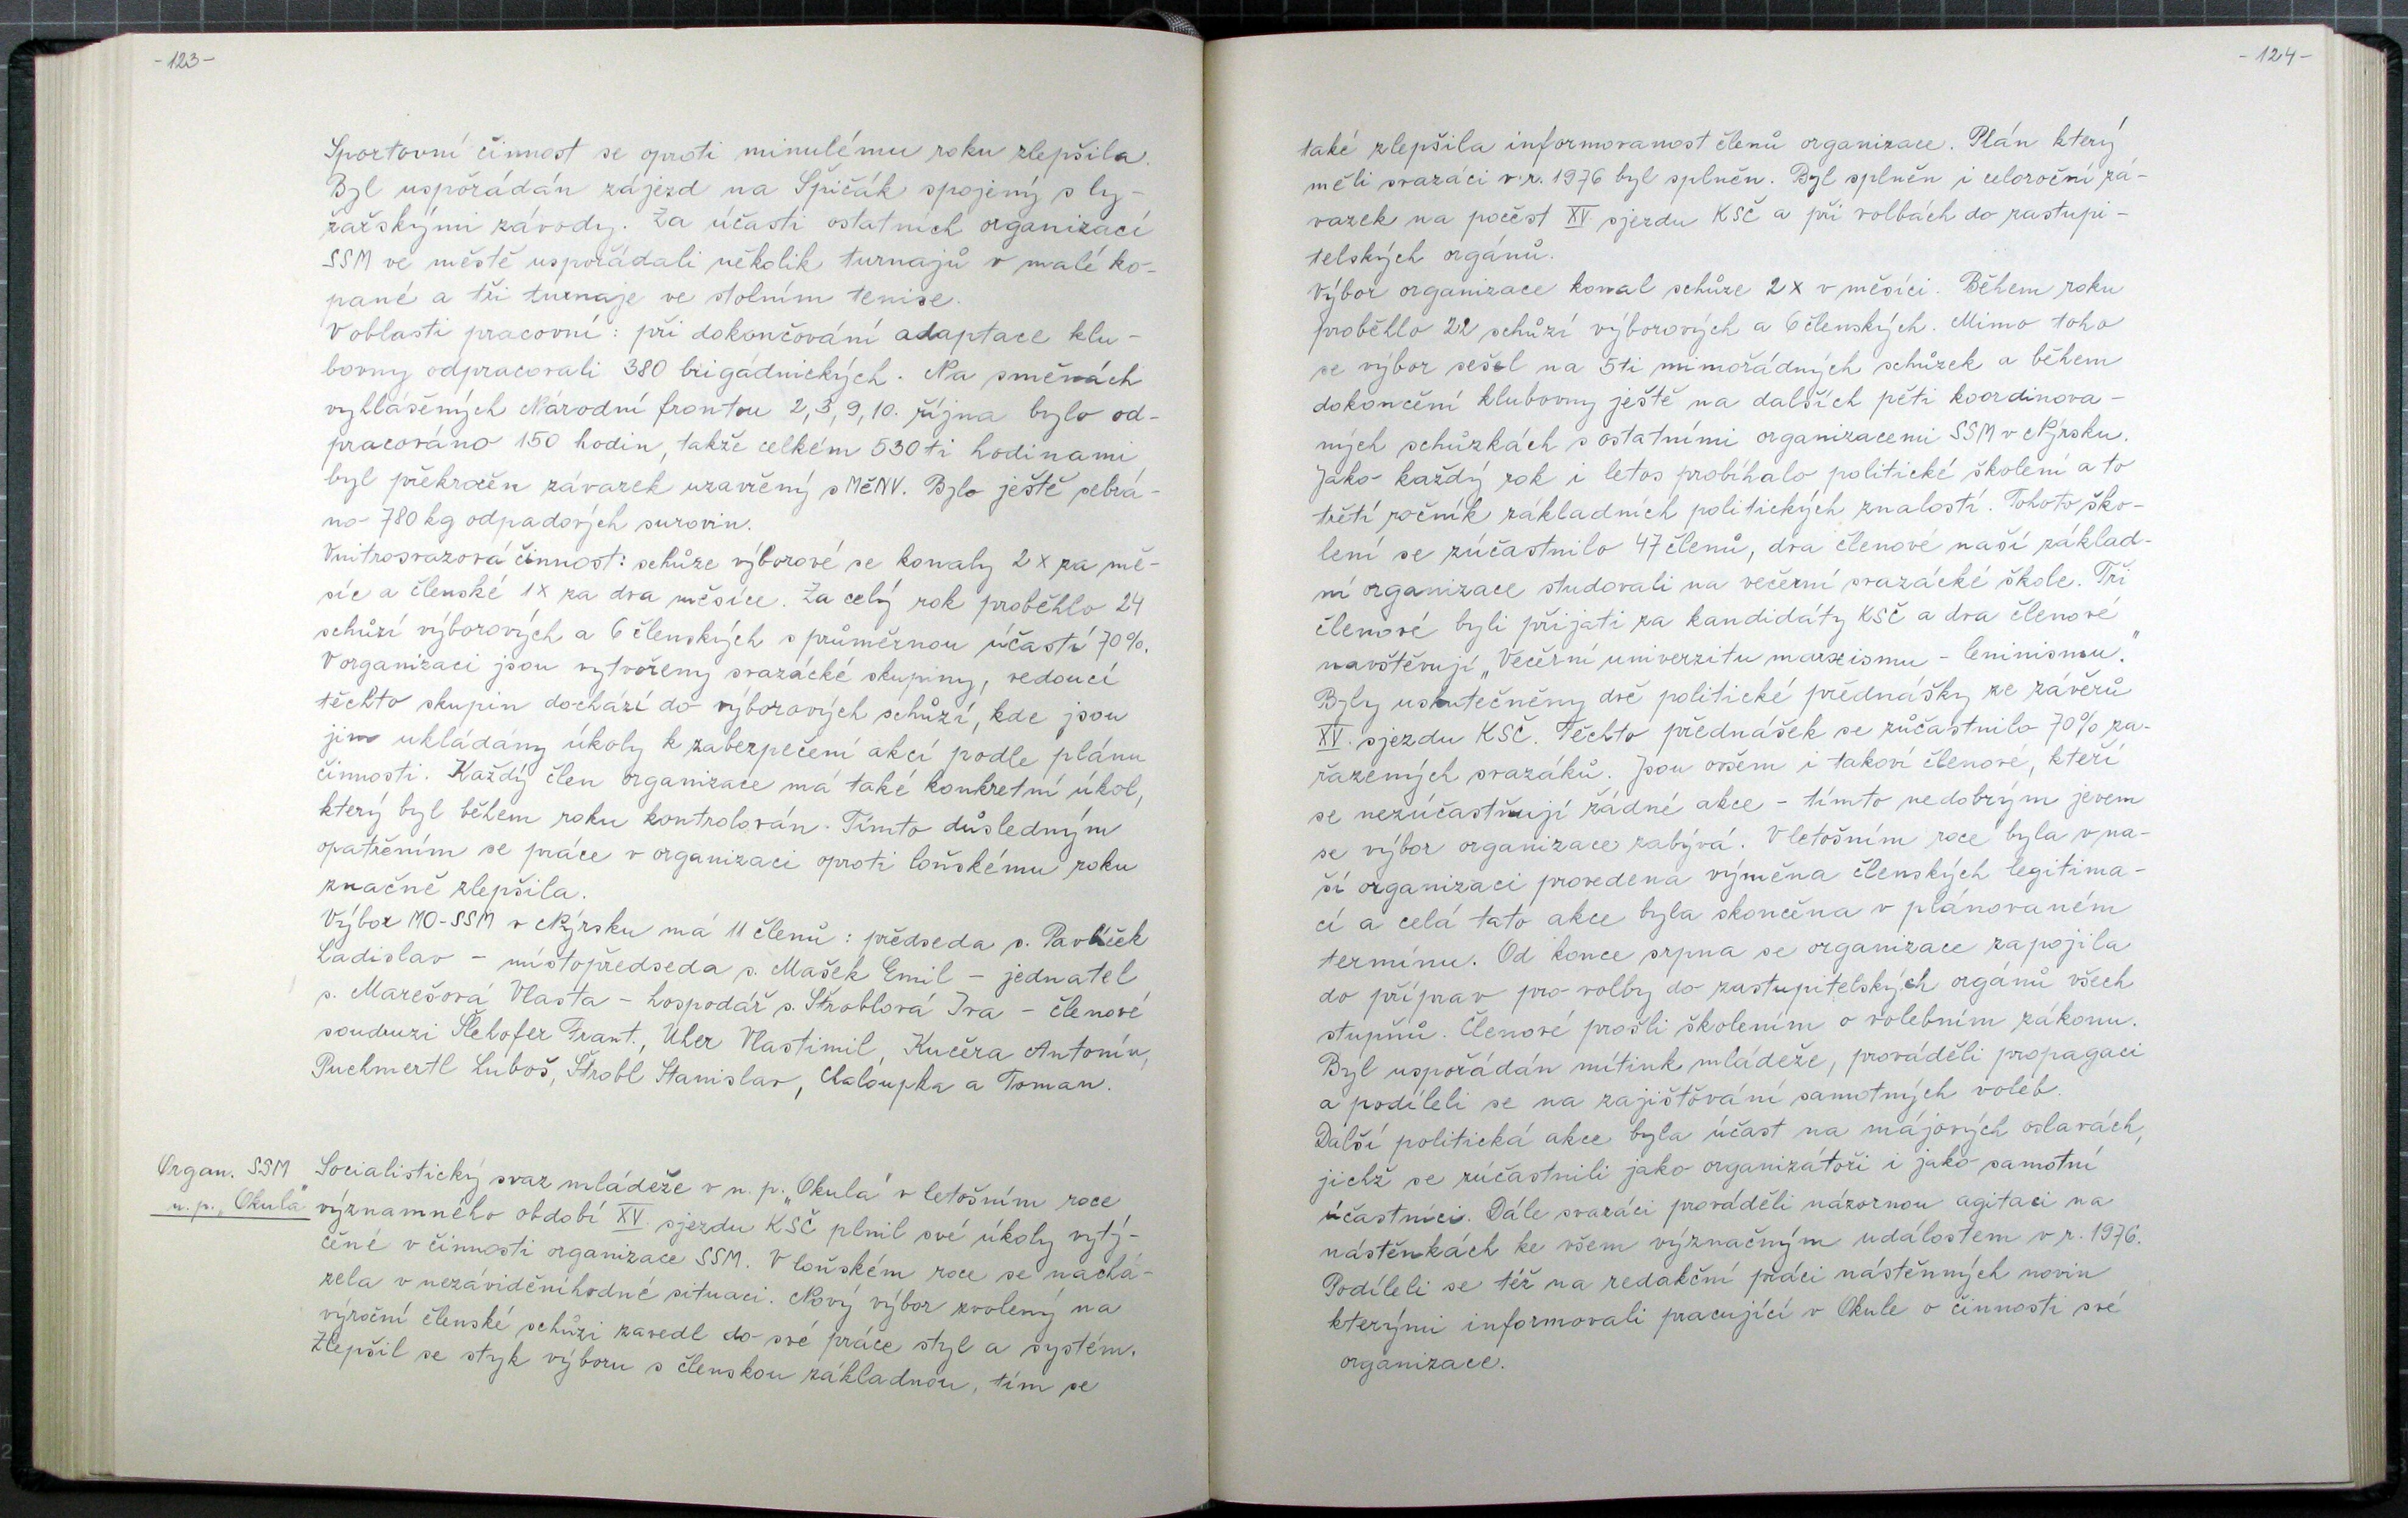 -123-
Sportovní činnost se oproti minulému roku zlepšila.
Byl uspořádán zájezd na Špičák spojený s ly-
žařskými závody. Za účasti ostatních organizací
SSM ve městě uspořádali několik turnajů v malé ko-
pané a tři turnaje ve stolním tenise.
V oblasti pracovní: při dokončování adaptace klu-
bovny odpracovali 380 brigádnických. Na směnách
vyhlášených Národní frontou 2, 3, 9, 10. října bylo od-
pracováno 150 hodin, takže celkém 530ti hodinami
byl překročen závazek uzavřený s MěNV. Bylo ještě sebrá-
no 780 kg odpadových surovin.
Vnitrosvazová činnost: schůze výborové se konaly 2x za mě-
síc a členské 1x za dva měsíce. Za celý rok proběhlo 24
schůzí výborových a 6 členských s průměrnou účastí 70%.
V organizaci jsou vytvořeny svazácké skupiny, vedoucí
těchto skupin dochází do výborových schůzí, kde jsou
jim ukládány úkoly k zabezpečení akcí podle plánu
činnosti. Každý člen organizace má také konkretní úkol,
který byl během roku kontrolován. Tímto důsledným
opatřením se práce v organizaci oproti loňskému roku
značně zlepšila.
Výbor MO-SSM v Nýrsku má 11 členů: předseda s. Pavlíček
Ladislav - místopředseda s. Mašek Emil - jednatel
s. Marešová Vlasta - hospodář s. Štroblová Iva - členové
soudruzi Šlehofer Frant., Uher Vlastimil, Kučera Antonín,
Puchmertl Luboš, Štrobl Stanislav, Chaloupka a Toman.
Organ. SSM
n. p. „Okula"
Socialistický svaz mládeže v n. p. „Okula" v letošním roce
významného období XV. sjezdu KSČ plnil své úkoly vytý-
čéné v činnosti organizace SSM. V loňském roce se nachá-
zela v nezáviděníhodné situaci. Nový výbor zvolený na
výroční členské schůzi zavedl do své práce styl a systém.
Zlepšil se styk výboru s členskou základnou, tím se
-124-
také zlepšila informovanost členů organizace. Plán který
měli svazáci v r. 1976 byl splněn. Byl splněn i celoroční zá-
vazek na počest XV. sjezdu KSČ a při volbách do zastupi-
telských orgánů.
Výbor organizace konal schůze 2x v měsíci. Během roku
proběhlo 22 schůzí výborových a 6 členských. Mimo toho
se výbor sešel na 5ti mimořádných schůzek a během
dokončení klubovny ještě na dalších pěti koordinova-
ných schůzkách s ostatními organizacemi SSM v Nýrsku.
Jako každý rok i letos probíhalo politické školení a to
třetí ročník základních politických znalostí. Tohoto ško-
lení se zúčastnilo 47 členů, dva členové naší základ-
ní organizace studovali na večerní svazácké škole. Tři
členové byli přijati za kandidáty KSČ a dva členové
navštěvují „Večerní univerzitu marxismu - leninismu."
Byly uskutečněny dvě politické přednášky ze závěrů
XV. sjezdu KSČ. Těchto přednášek se zůčastnilo 70% za-
řazených svazáků. Jsou ovšem i takoví členové, kteří
se nezúčastňují žádné akce - tímto nedobrým jevem
se výbor organizace zabývá. V letošním roce byla v na-
ší organizaci provedena výměna členských legitima-
cí a celá tato akce byla skončena v plánovaném
termínu. Od konce srpna se organizace zapojila
do příprav pro volby do zastupitelských orgánů všech
stupňů. Členové prošli školením o volebním zákonu.
Byl uspořádán mítink mládeže, prováděli propagaci
a podíleli se na zajišťování samotných voleb.
Další politická akce byla účast na májových oslavách,
jichž se zúčastnili jako organizátoři i jako samotní
účastníci. Dále svazáci prováděli názornou agitaci na
nástěnkách ke všem význačným událostem v r. 1976.
Podíleli se též na redakční práci nástěnných novin
kterými informovali pracující v Okule o činnosti své
organizace.